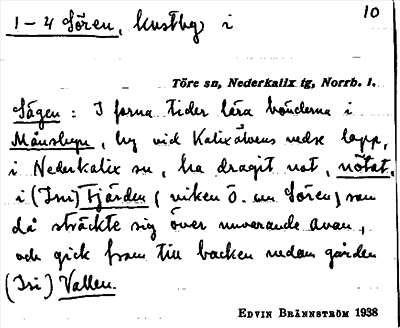 1-4 Sören, kustby i
10
Töre sn, Nederkalix tg, Norrb. l.
Sägen: I forna tider lära bönderna i
Månsbyn, by vid Kalixälvens nedre lopp,
i Nederkalix sn, ha dragit not, nötat,
i (Ini) Fjärden (viken ö. om Sören) som
då sträckte sig över nuvarande avan,
och gick fram till backen nedom gården
(Ini) Vallen.
EDVIN BRÄNNSTRÖM 1938